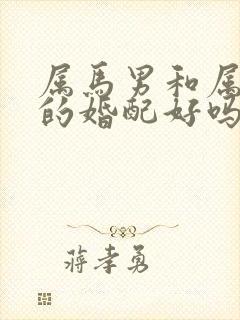 属马男和属
的婚配好吗
蒋孝勇